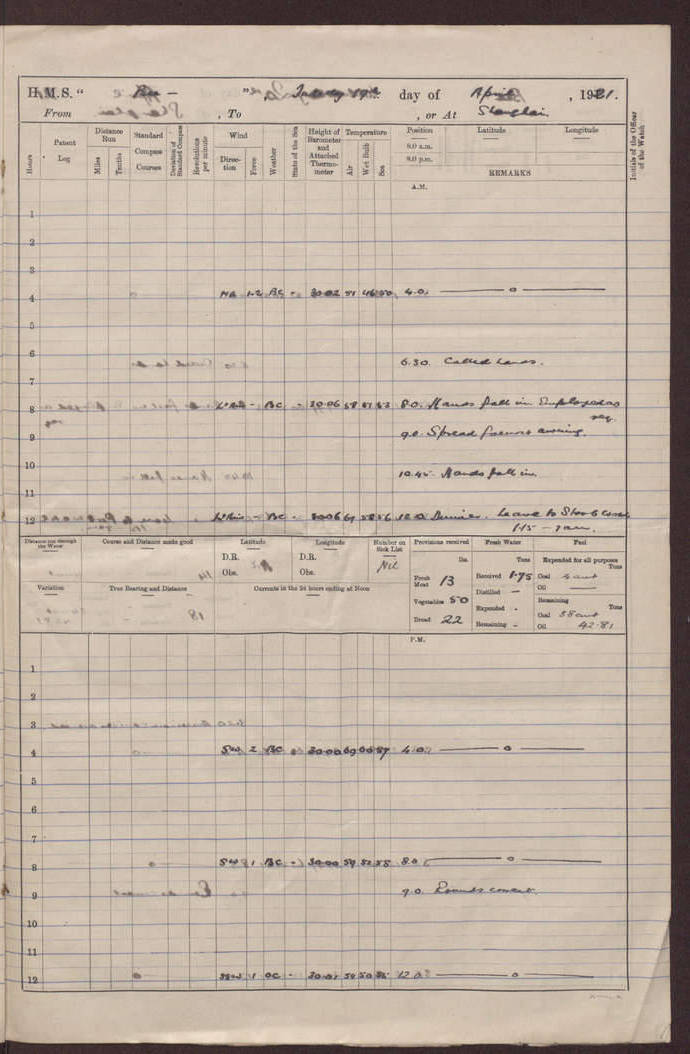 H.M.S. " Bee - " Tuesday 19th day of April , 1921.
From , To , or At Shanghai
Hours
Patent Log
Distance Run
Miles
Tenths
Standard Compass Courses
Deviation of Standard Compass
Revolutions per minute
Wind
Direction
Force
Weather
State of the Sea
Height of Barometer and Attached Thermometer
Temperature
Air
Wet Bulb
Sea
Position Latitude Longitude
8.0 a.m.
8.0 p.m.
REMARKS
Initials of the Officer of the Watch
A.M.
1
2
3
4 NE 1-2 BC - 30.02 51 46 50 4.0. — o —
5
6 6.30. Called hands.
7
8 - BC - 30.06 58 51 53 8.0. Hands fall in Employed as req.
9 9.0. Spread awning.
10 10.45. Hands fall in.
11
12 - BC - 30.06 12.0. Dinner. Leave to
1.15 - 7am.
Distance run through the Water
Course and Distance made good
Latitude
D.R.
Obs.
Longitude
D.R.
Obs.
Number on Sick List
Nil
Provisions received
lbs.
Fresh Meat 13
Vegetables 50
Bread 22
Fresh Water
Tons
Received 1.75
Distilled —
Expended -
Remaining -
Fuel
Expended for all purposes
Tons
Coal cwt
Oil —
Remaining Tons
Coal 38 cwt
Oil 42.81
Variation
True Bearing and Distance
Currents in the 24 hours ending at Noon
P.M.
1
2
3
4 SW 2 BC 30.00 69 60 57 4.0. — o —
5
6
7
8 SW 1 BC - 30.00 59 52 55 8.0 — o —
9 9.0. Rounds correct.
10
11
12 SSW 1 OC - 30.01 54 50 12.0 — o —